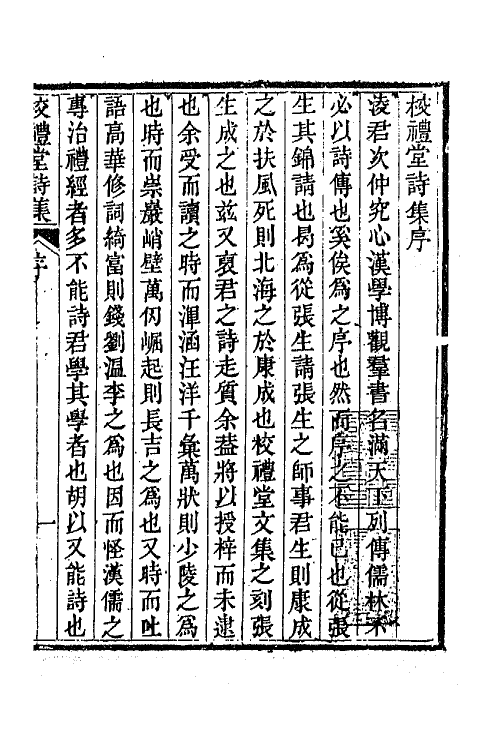 校禮堂詩集序
凌君次仲究心漢學博觀羣書名滿天下列傳儒林不
必以詩傳也奚俟爲之序也然而序之不能已也從張
生其錦請也曷爲從張生請張生之師事君生則康成
之於扶風死則北海之於康成也校禮堂文集之刻張
生成之也茲又裒君之詩走質余葢將以授梓而未逮
也余受而讀之時而渾涵汪洋千彙萬狀則少陵之爲
也時而崇巖峭壁萬仞崛起則長吉之爲也又時而吐
語高華修詞綺富則錢劉溫李之爲也因而怪漢儒之
專治禮經者多不能詩君學其學者也胡以又能詩也
校禮堂詩集
序
一